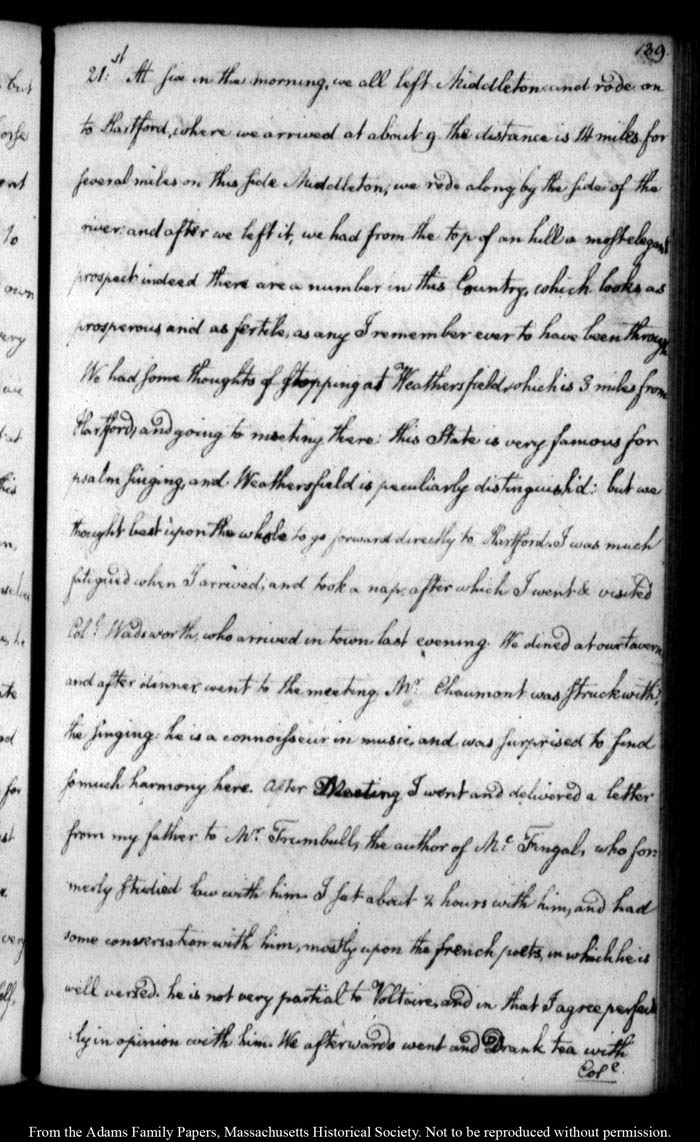 139
21:st At six in the morning, we all left Middleton and rode on
to Hartford, where we arrived at about 9. the distance is 14 miles. for
several miles on this side Middleton, we rode along by the side of the
river: and after we left it, we had from the top of an hill a most elegant
prospect: indeed there are a number in this Country, which looks as
prosperous, and as fertile, as any I remember ever to have been through
We had some thoughts of stopping at Weathersfield, which is 3 miles from
Hartford, and going to meeting there: this State is very famous for
psalm singing, and Weathersfield is peculiarly distinguish'd: but we
thought best upon the whole to go forward directly to Hartford. I was much
fatigued when I arrived, and took a nap, after which I went & visited
Colo. Wadsworth, who arrived in town last evening. We dined at our tavern
and after dinner, went to the meeting. Mr. Chaumont was struck with
the singing: he is a connoisseur in music, and was surprised to find
so much harmony here. After Meeting I went and delivered a letter
from my father to Mr. Trumbull, the author of Mc. Fingal, who for:
merly studied law with him. I sat about 2 hours with him, and had
some conversation with him, mostly upon the french poets, in which he is
well versed. he is not very partial to Voltaire, and in that I agree perfect
:ly in opinion with him. We afterwards went and Drank tea with
Colo
but
to
own
very
are
that
this
on,
he
for
very
From the Adams Family Papers, Massachusetts Historical Society. Not to be reproduced without permission.